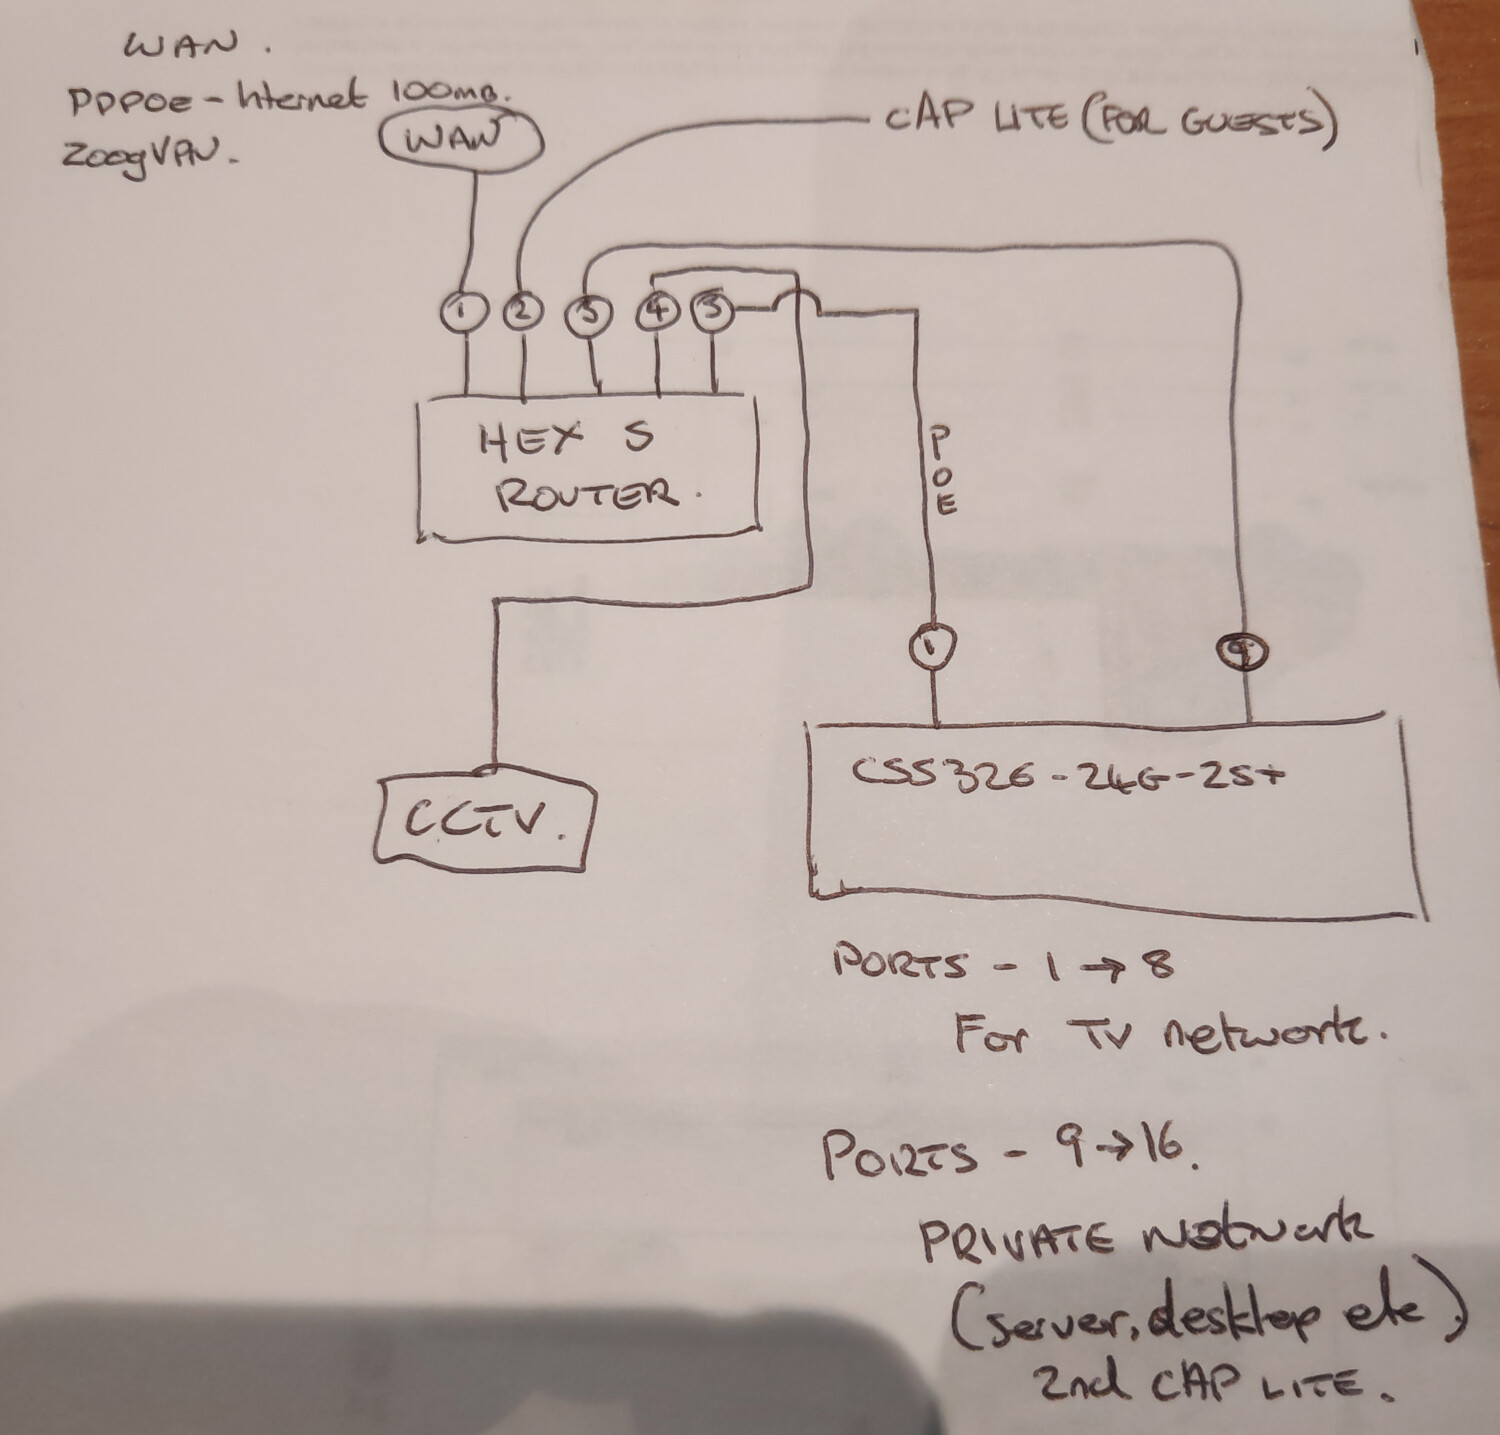 WAN.
PPPOE - Internet 100mb.
ZoogVPN.
WAN
CAP LITE (FOR GUESTS)
1 2 3 4 5
HEX S
ROUTER.
POE
1 9
CSS326-24G-2S+
CCTV.
PORTS - 1 → 8
For TV network.
PORTS - 9 → 16.
PRIVATE Network
(server, desktop etc)
2nd CAP LITE.